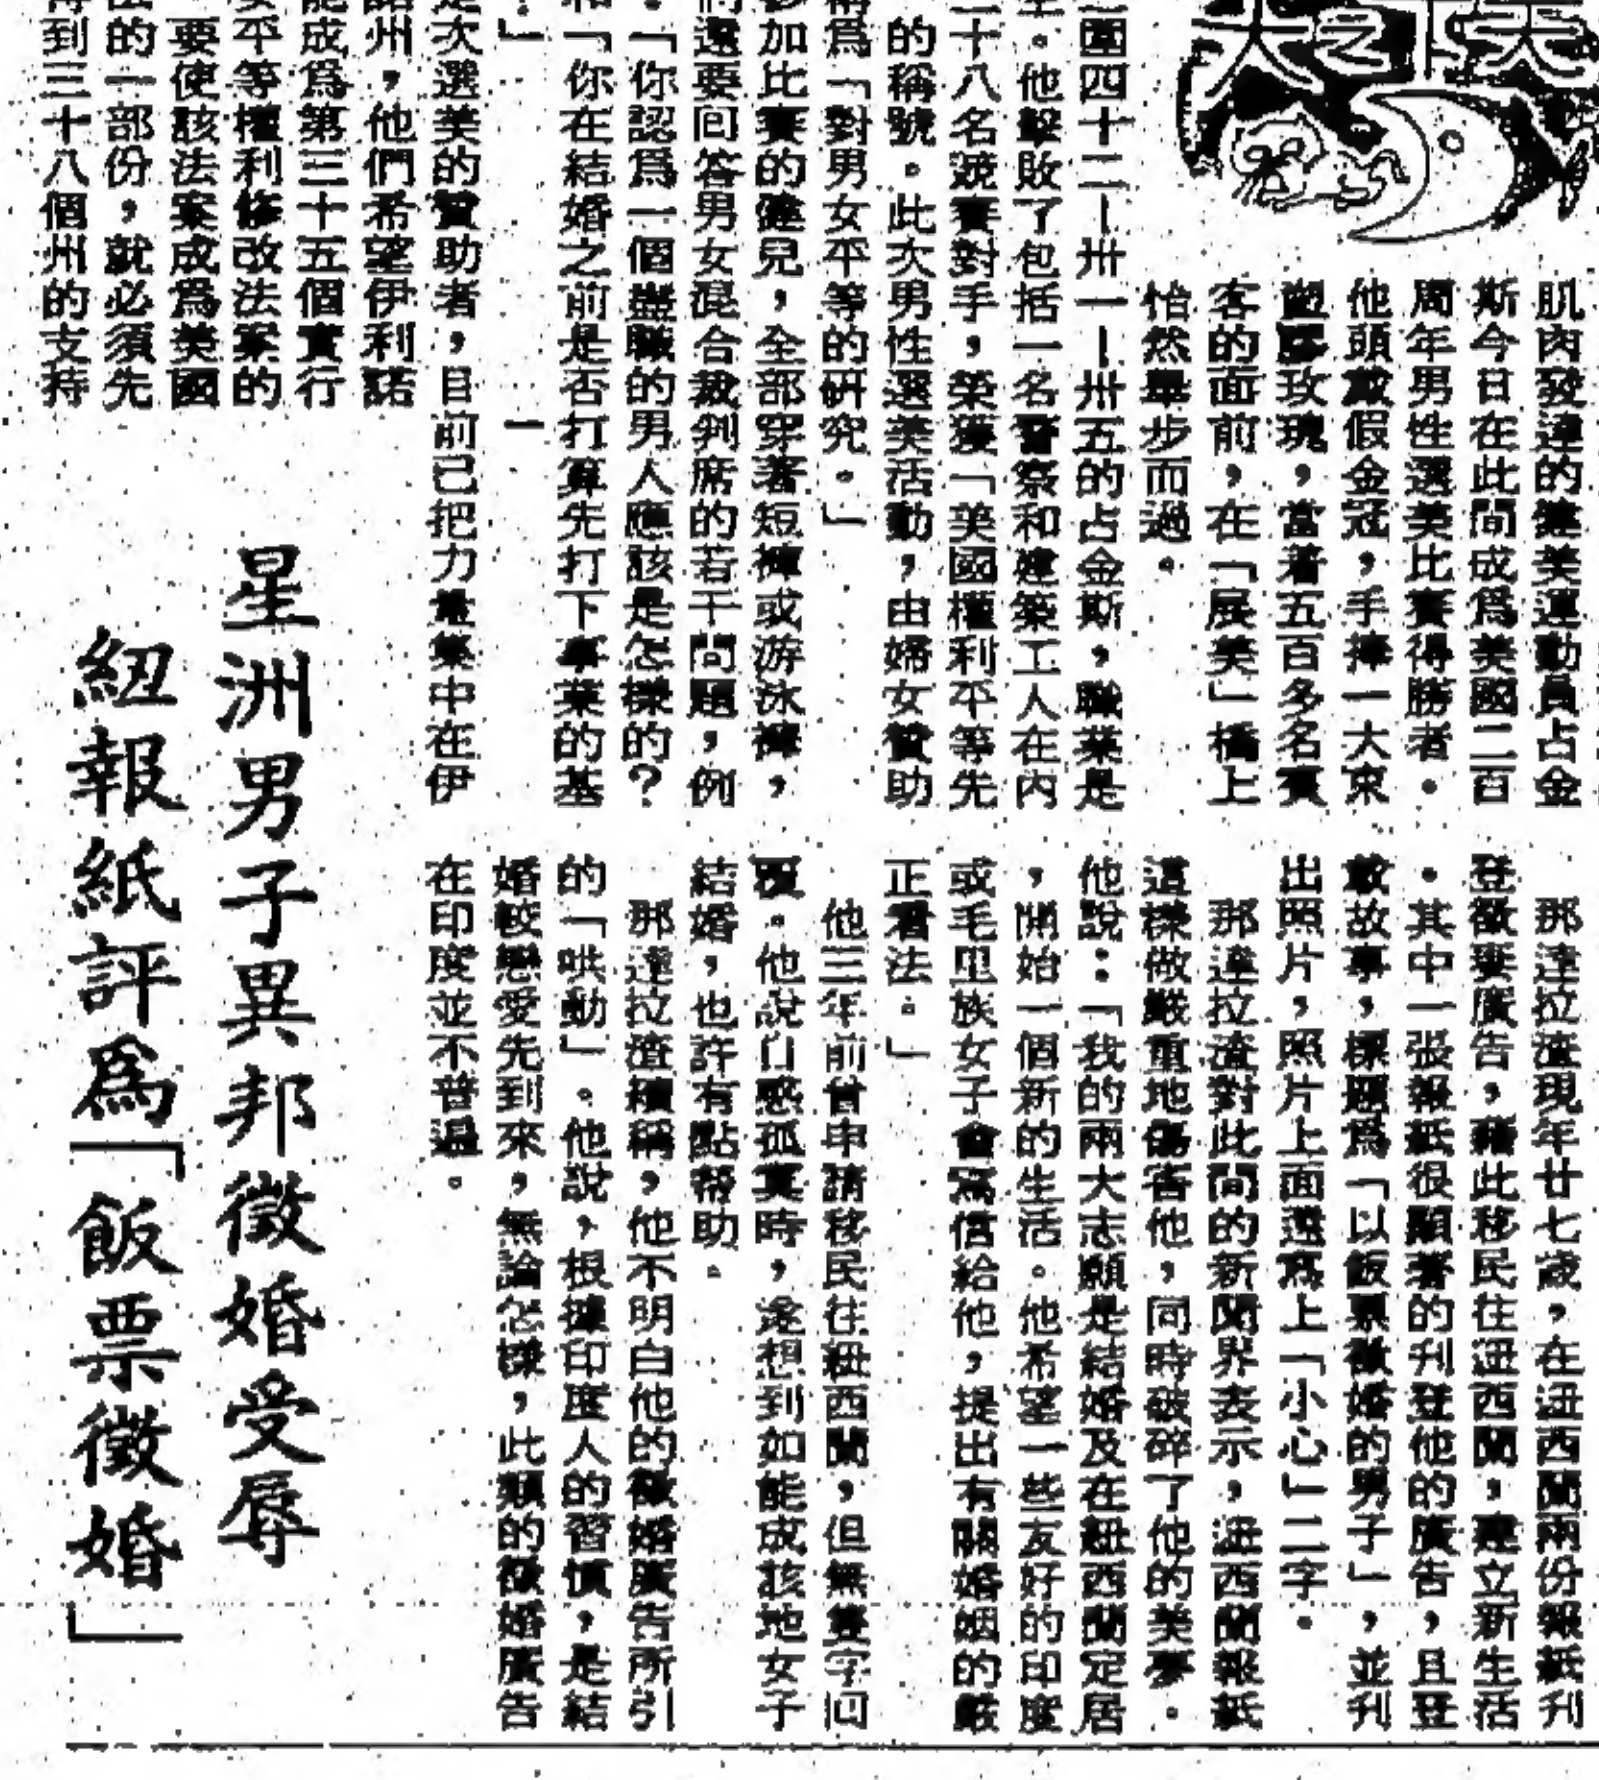 天下之大
肌肉發達的健美運動員占金
斯今日在此間成爲美國二百
周年男性選美比賽得勝者。
他頭戴假金冠,手捧一大束
塑膠玫瑰,當着五百多名賓
客的面前,在「展美」橋上
怡然舉步而過。
圍四十二—卅一—卅五的占金斯,職業是
。他擊敗了包括一名警察和建築工人在內
十八名競賽對手,榮獲「美國權利平等先
的稱號。此次男性選美活動,由婦女贊助
爲「對男女平等的研究。」
加比賽的健兒,全部穿著短褲或游泳褲,
還要回答男女混合裁判席的若干問題,例
。「你認爲一個盡職的男人應該是怎樣的?
和「你在結婚之前是否打算先打下事業的基
」
次選美的贊助者,目前已把力量集中在伊
州,他們希望伊利諾
成爲第三十五個實行
平等權利修改法案的
要使該法案成爲美國
的一部份,就必須先
到三十八個州的支持
星洲男子異邦徵婚受辱
紐報紙評爲「飯票徵婚」
那達拉渣現年廿七歲,在紐西蘭兩份報紙刋
登徵妻廣告,藉此移民往紐西蘭,建立新生活
。其中一張報紙很顯著的刋登他的廣告,且登
載故事,標題爲「以飯票徵婚的男子」,並刋
出照片,照片上面還寫上「小心」二字。
那達拉渣對此間的新聞界表示,紐西蘭報紙
這樣做嚴重地傷害他,同時破碎了他的美夢。
他說:「我的兩大志願是結婚及在紐西蘭定居
,開始一個新的生活。他希望一些友好的印度
或毛里族女子會寫信給他,提出有關婚姻的嚴
正看法。」
他三年前曾申請移民往紐西蘭,但無隻字囘
覆。他說自感孤寞時,遂想到如能成該地女子
結婚,也許有點帮助。
那達拉渣續稱,他不明白他的徵婚廣告所引
的「哄動」。他說,根據印度人的習慣,是結
婚較戀愛先到來,無論怎樣,此類的徵婚廣告
在印度並不普遍。